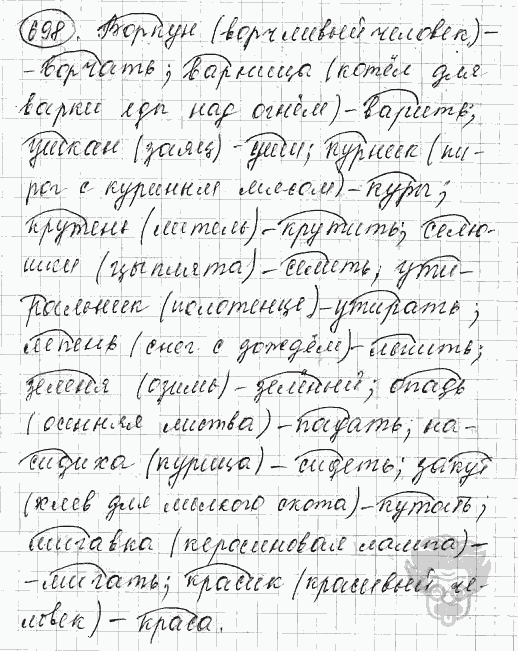 698. Воркун (ворчливый человек) –
– ворчать; варница (котёл для
варки еды над огнём) – варить;
ушкан (заяц) – уши; курник (пи-
рог с куриным мясом) – куры;
крутень (метель) – крутить; семю-
шки (цыплята) – семить; ути-
ральник (полотенце) – утирать;
лепень (снег с дождём) – лепить;
зеленя (озимь) – зелёный; опадь
(осенняя листва) – падать; на-
сидиха (курица) – сидеть; закут
(хлев для мелкого скота) – кутать;
мигавка (керосиновая лампа) –
– мигать; красик (красивый че-
ловек) – краса.